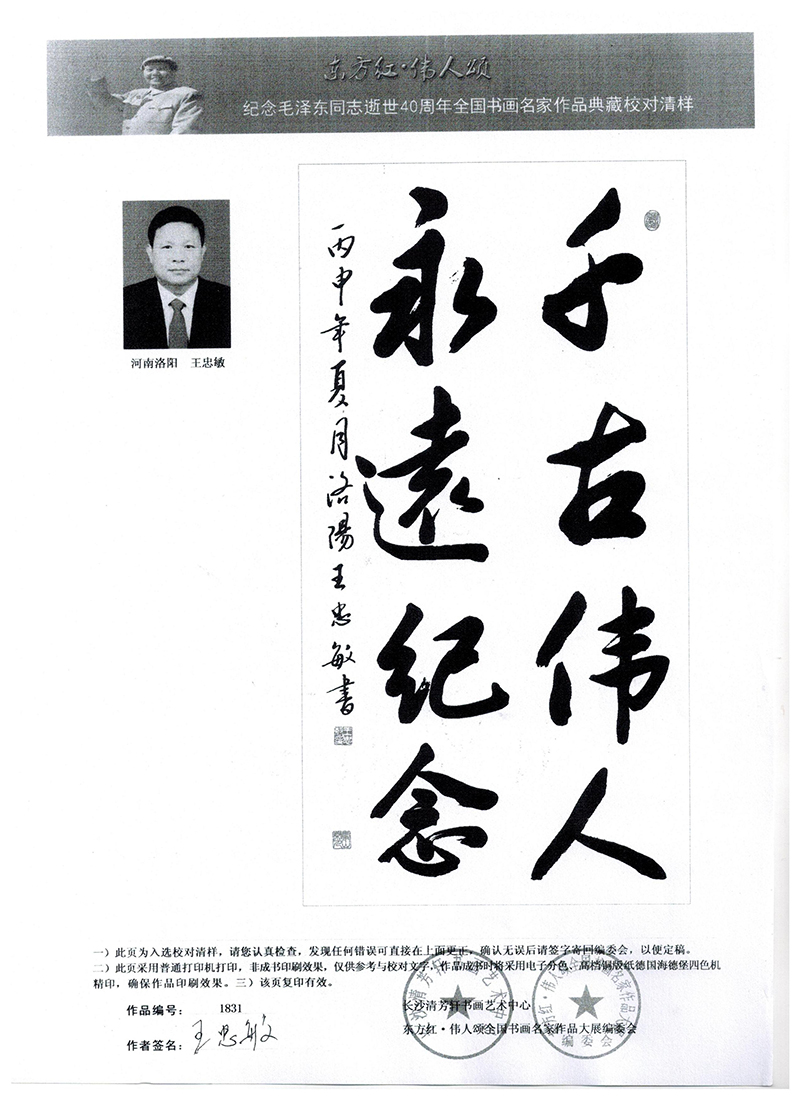 东方红·伟人颂
纪念毛泽东同志逝世40周年全国书画名家作品典藏校对清样
河南洛阳　王忠敏
千古伟人
永遠纪念
丙申年夏月洛陽王忠敏書
一）此页为入选校对清样，请您认真检查，发现任何错误可直接在上面更正，确认无误后请签字寄回编委会，以便定稿。
二）此页采用普通打印机打印，非成书印刷效果，仅供参考与校对文字，作品成书时将采用电子分色、高档铜版纸德国海德堡四色机
精印，确保作品印刷效果。三）该页复印有效。
作品编号：　1831
长沙清芳轩书画艺术中心
作者签名：王忠敏
东方红·伟人颂全国书画名家作品大展编委会
编委会